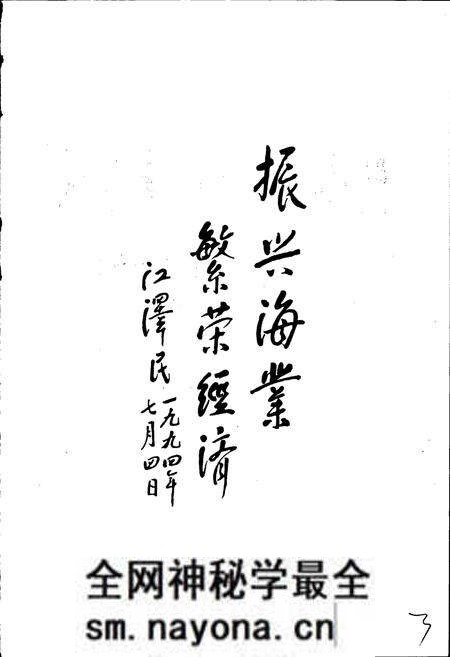 振兴海業
繁荣經済
江澤民
一九九四年
七月四日
全网神秘学最全
sm.nayona.cn
3